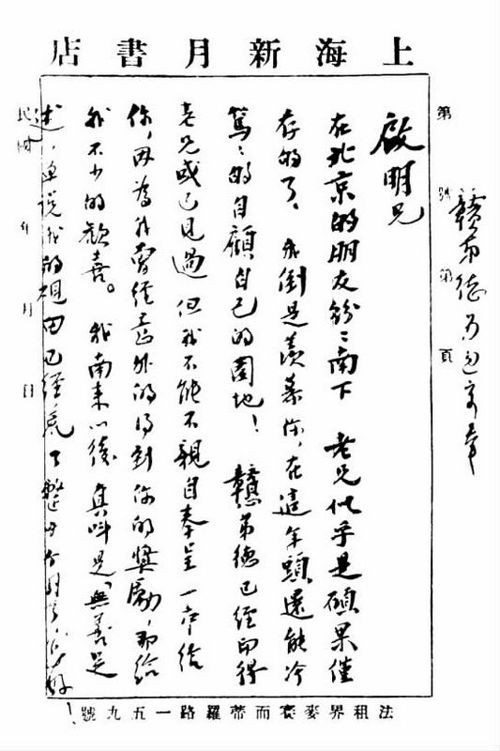 上海新月書店
第 號 第 頁
啟明兄
在北京的朋友紛紛南下 老兄似乎是碩果僅
存的了、我倒是羨慕你,在這年頭還能冷
篤篤的自顧自己的園地! 贛第德已經印得
老兄或已見過 但我不能不親自奉呈一本給
你,因為我曾經意外的得到你的獎勵,那給
我不少的歡喜。我南來以後 真叫是「無善足
述」,單說我的硯田已經荒了整四個月了,怎好!
民國 年 月 日
法租界麥賽而蒂羅路一五九號